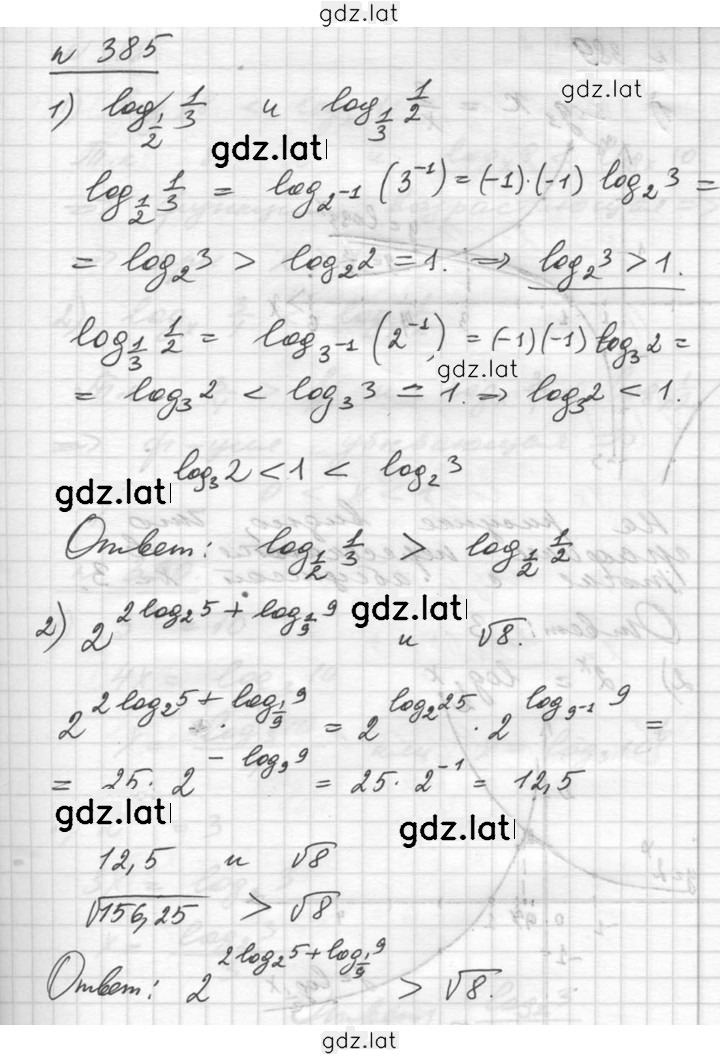 gdz.lat
n 385
1) log_{1/2} 1/3 и log_{1/3} 1/2
gdz.lat
gdz.lat
log_{1/2} 1/3 = log_{2^{-1}} (3^{-1}) = (-1)·(-1) log_2 3 =
= log_2 3 > log_2 2 = 1. ⇒ log_2 3 > 1.
log_{1/3} 1/2 = log_{3^{-1}} (2^{-1}) = (-1)(-1) log_3 2 =
gdz.lat
= log_3 2 < log_3 3 = 1. ⇒ log_3 2 < 1.
log_3 2 < 1 < log_2 3
gdz.lat
Ответ: log_{1/2} 1/3 > log_{1/2} 1/2
2) 2^{2 log_2 5 + log_{1/9} 9} и √8.
gdz.lat
2^{2 log_2 5 + log_{1/9} 9} = 2^{log_2 25} · 2^{log_{9^{-1}} 9} =
= 25 · 2^{- log_9 9} = 25 · 2^{-1} = 12,5
gdz.lat
gdz.lat
12,5 и √8
√156,25 > √8
Ответ: 2^{2 log_2 5 + log_{1/9} 9} > √8.
gdz.lat